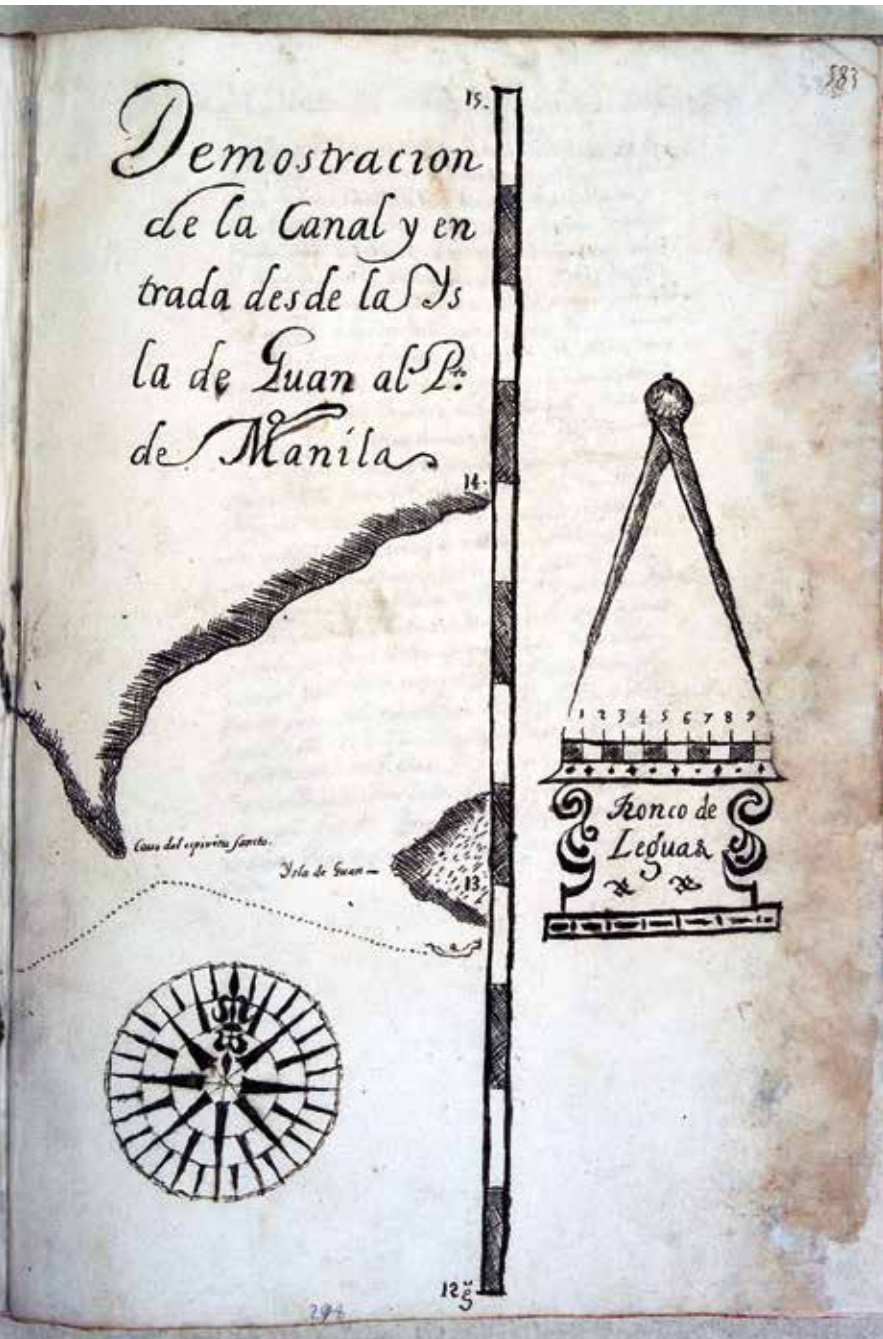 583
15.
Demostracion
de la Canal y en
trada desde la Ys
la de Guan al Pto.
de Manila
14.
1 2 3 4 5 6 7 8 9
Cauo del espiritu sancto.
Ysla de Guan
13
Tronco de
Leguas
12 gs
298